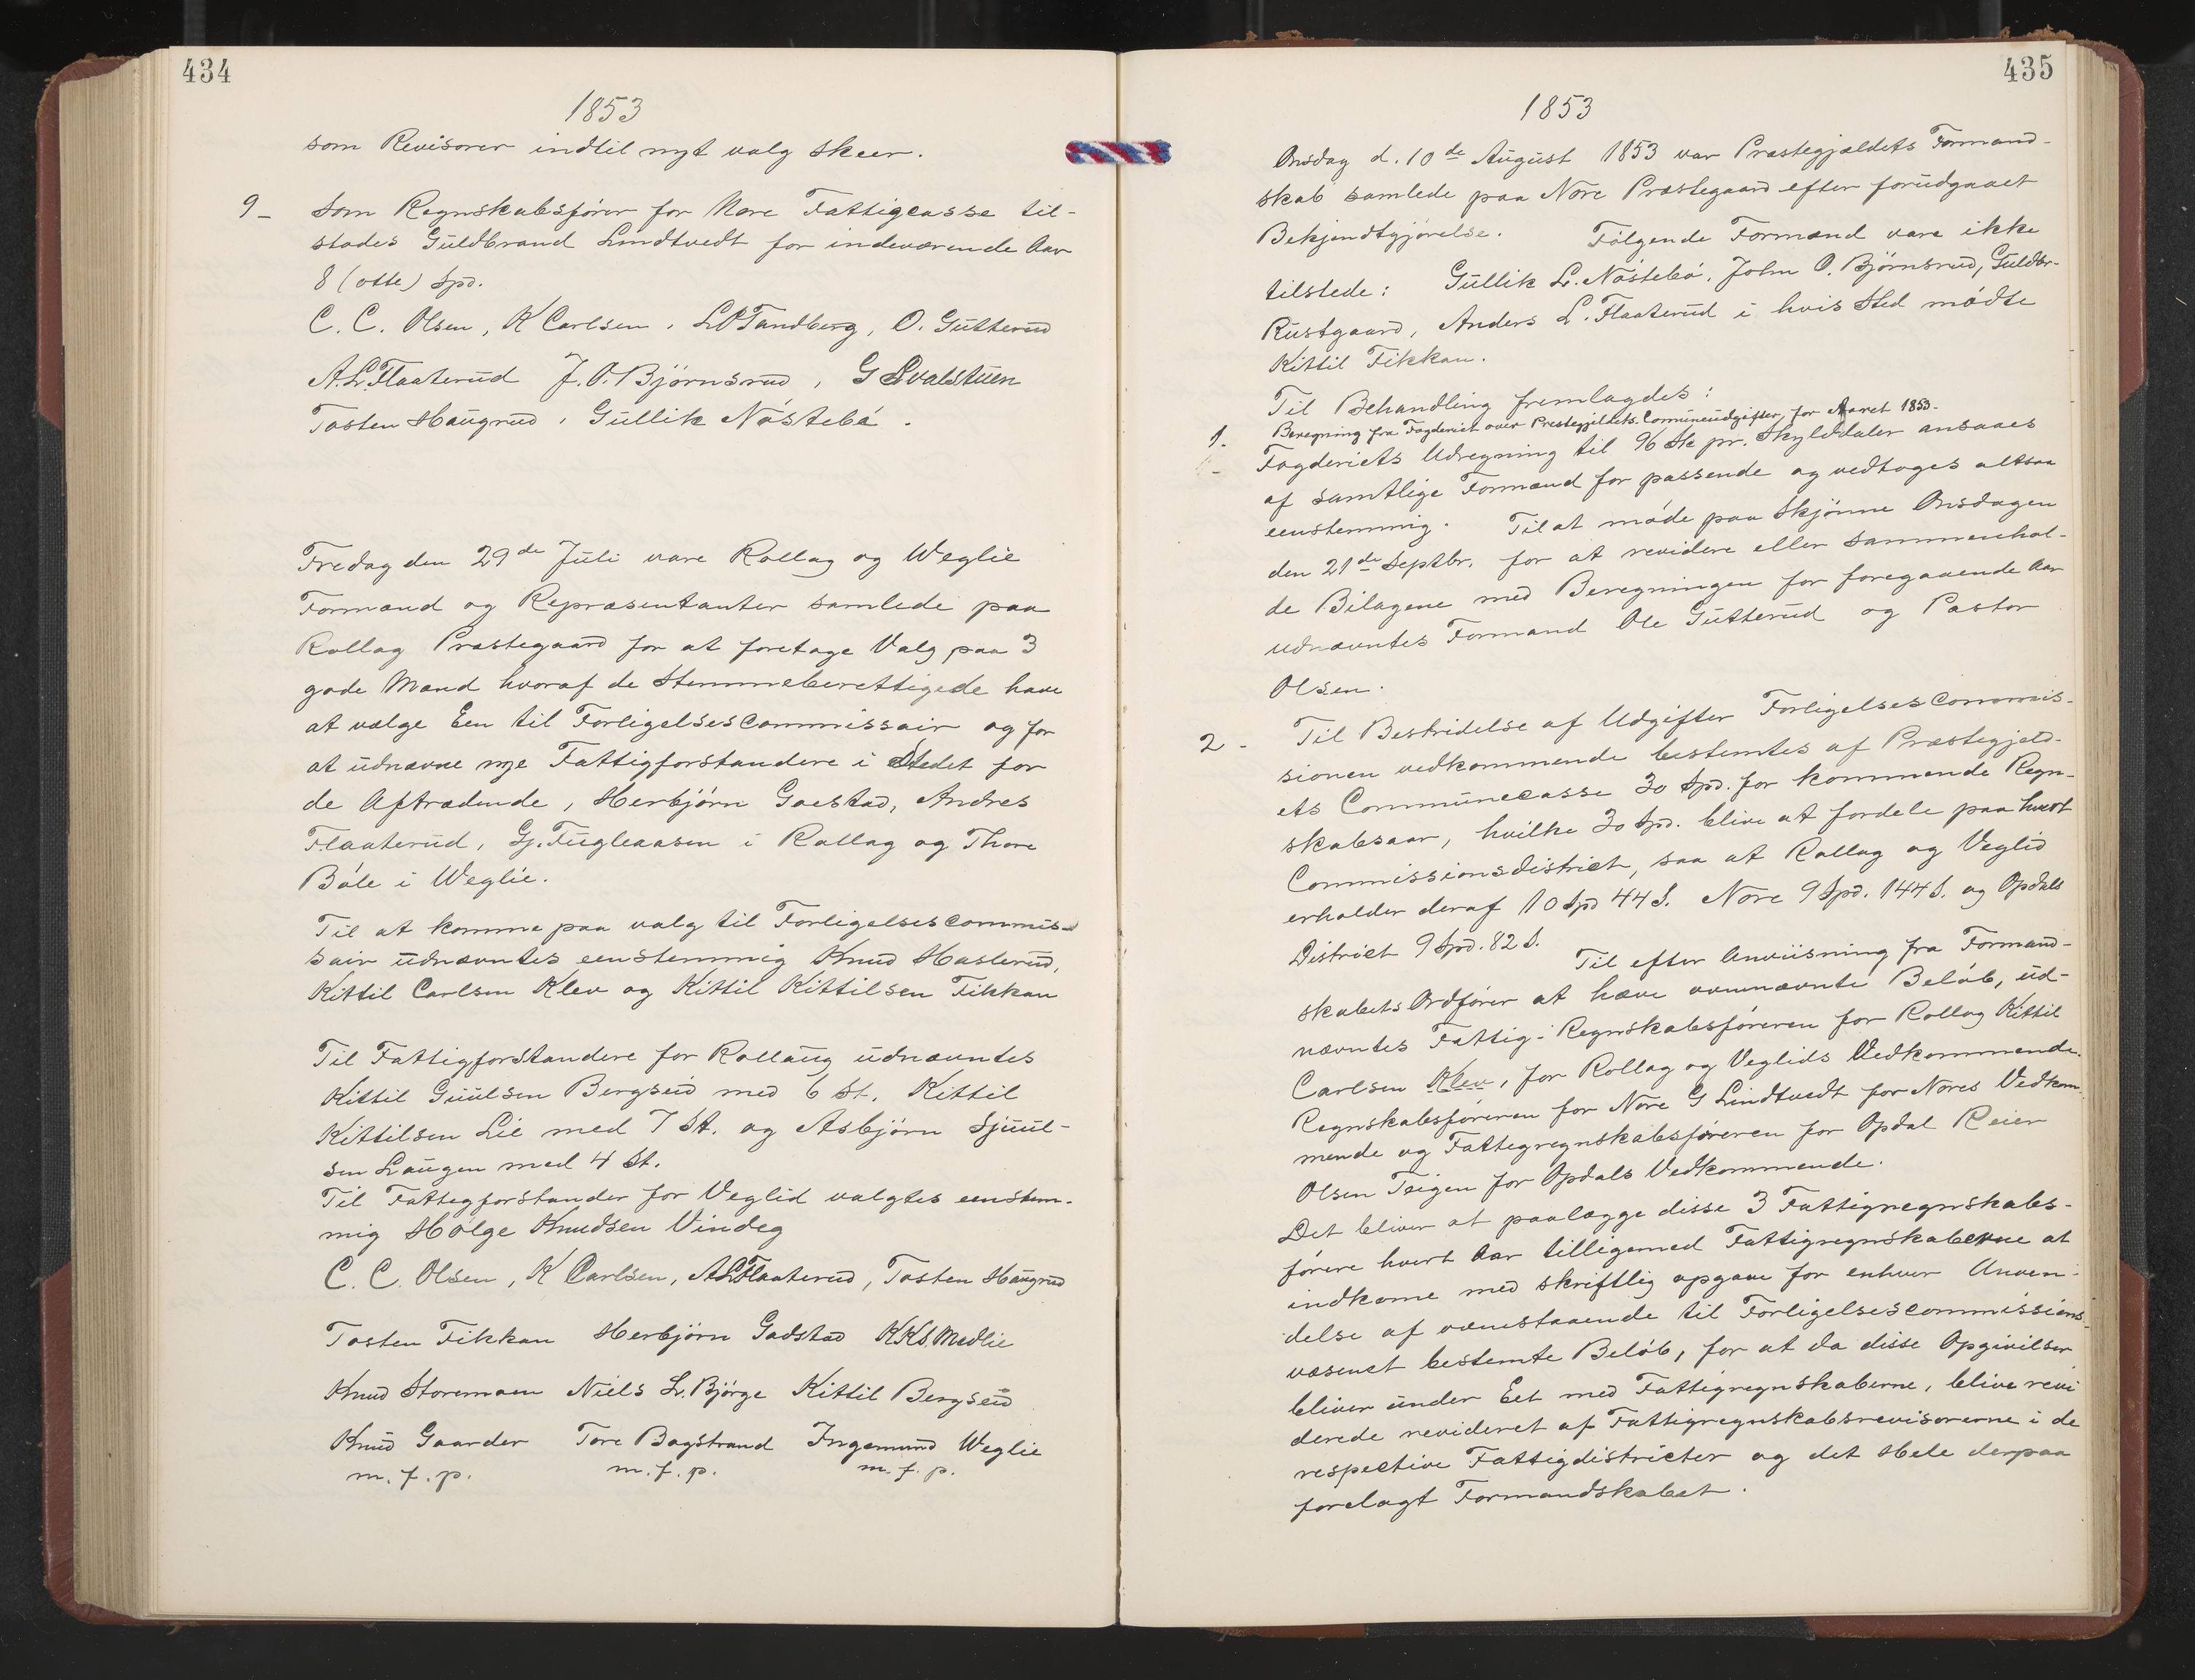 434
1853
som Revisorer indtil nyt valg skeer.
9 - Som Regnskabsfører for Nore Fattigcasse til-
stodes Guldbrand Lindtvedt for indeværende Aar
8 (otte) Spd.
C. C. Olsen, K Carlsen, L P Tandberg, O. Gütterüd
A. L. Flaaterüd J. O. Bjørnsrud, G Svalstüen
Tosten Haugrud, Güllik Nöstebö.
Fredag den 29de Juli vare Rollag og Weglie
Formænd og Repræsentanter samlede paa
Rollag Præstegaard for at foretage Valg paa 3
gode Mænd hvoraf de Stemmeberettigede have
at vælge Een til Forligelsescommissair og for
at udnævne nye Fattigforstandere i Stedet for
de Aftrædende, Herbjørn Gaestad, Andres
Flaaterüd, Gj. Fugleaasen i Rollag og Thore
Bøle i Weglie.
Til at komme paa valg til Forligelsescommis-
sair udnævntes eenstemmig Knud Haslerud,
Kittil Carlsen Klev og Kittil Kittilsen Fikkan
Til Fattigforstandere for Rollaug udnævntes
Kittil Güülsen Bergseid med 6 St. Kittil
Kittilsen Lie med 7 St. og Asbjørn Sjuul-
sen Laugen med 4 St.
Til Fattegforstander for Veglid valgtes eenstem-
mig Holge Knudsen Vindeg
C. C. Olsen, K Carlsen, A L Flaaterud, Tosten Haugrud
Tosten Fikkan Herbjörn Gadstad K K S. Medlie
Knud Storemoen Niels L. Bjørge Kittil Bergseid
Knud Gaarder Tore Bagstrand Ingemund Weglie
m. f. p. m. f. p. m. f. p.
435
1853
Onsdag d. 10de August 1853 var Præstegjældets Formand-
skab samlede paa Nore Præstegaard efter forudgaaet
Bekjendtgjørelse. Følgende Formænd vare ikke
tilstede: Gullik L. Nöstebö, John O. Bjørnsrud, Guldbr.
Rustgaard, Anders L. Flaaterud i hvis Sted mödte
Kittil Fikkan.
Til Behandling fremlagdes:
1. Beregning fra Fogderiet over Prestegjeldets Comuneudgifter for Aaret 1853.
Fogderiets Udregning til 96 Sk pr. Skylddaler ansaaes
af samtlige Formænd for passende og vedtoges altsaa
eenstemmig. Til at møde paa Skjønne Onsdagen
den 21de Septbr. for at revidere eller sammenhol-
de Bilagene med Beregningen for foregaaende Aar
udnævntes Formand Ole Gutterud og Pastor
Olsen.
2 - Til Bestridelse af Udgifter Forligelsescommis-
sionen vedkommende bestemtes af Præstegjeld-
ets Communecasse 30 Spd. for kommende Regn-
skabsaar, hvilke 30 Spd. blive at fordele paa hvert
Commissionsdistrict, saa at Rollag og Veglid
erholder deraf 10 Spd 44 S. Nore 9 Spd. 144 S. og Opdals
District 9 Spd. 82 S.
Til efter Anviisning fra Formand-
skabets Ordfører at hæve ovennævnte Beløb, ud-
nævntes Fattig-Regnskabsføreren for Rollag Kittil
Carlsen Klev, for Rollag og Veglids Vedkommende.
Regnskabsføreren for Nore G Lindtvedt for Nores Vedkom-
mende og Fattegregnskabsføreren for Opdal Reier
Olsen Teigen for Opdals Vedkommende.
Det bliver at paalægge disse 3 Fattigregnskabs-
førere hvert Aar tilligemed Fattigregnskaberne at
indkome med skriftlig opgave for enhver Anven-
delse af ovenstaaende til Forligelsescommissions-
væsenet bestemte Beløb, for at da disse Opgivelser
bliver under Eet med Fattigregnskaberne, blive revi
derede revideret af Fattigregnskabsrevisorerne i de
respective Fattigdistricter og det Hele derpaa
forelagt Formandskabet.